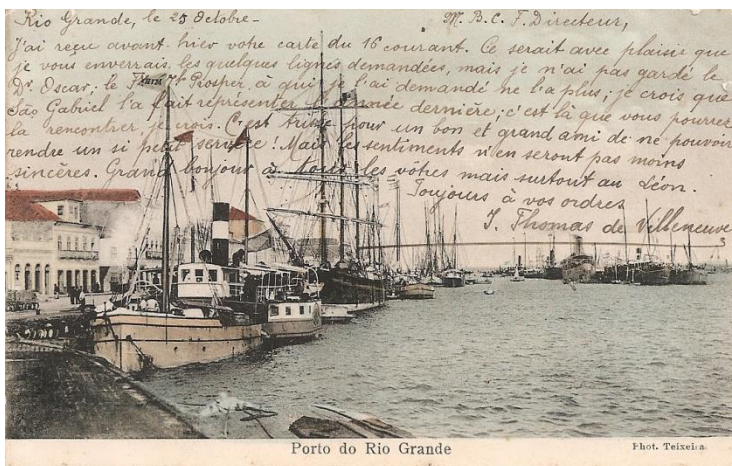 Rio Grande, le 25 Octobre - M. B. C. F. Directeur,
J'ai reçu avant-hier votre carte du 16 courant. Ce serait avec plaisir que
je vous enverrais les quelques lignes demandées, mais je n'ai pas gardé le
Dr. Oscar; le Prosper, à qui je l'ai demandé ne l'a plus; je crois que
São Gabriel l'a fait représenter l'année dernière; c'est là que vous pourrez
la rencontrer, je crois. C'est triste pour un bon et grand ami de ne pouvoir
rendre un si petit service! Mais les sentiments n'en seront pas moins
sincères. Grand bonjour à tous les vôtres mais surtout au Léon.
Toujours à vos ordres
J. Thomas de Villeneuve
Porto do Rio Grande
Phot. Teixeira